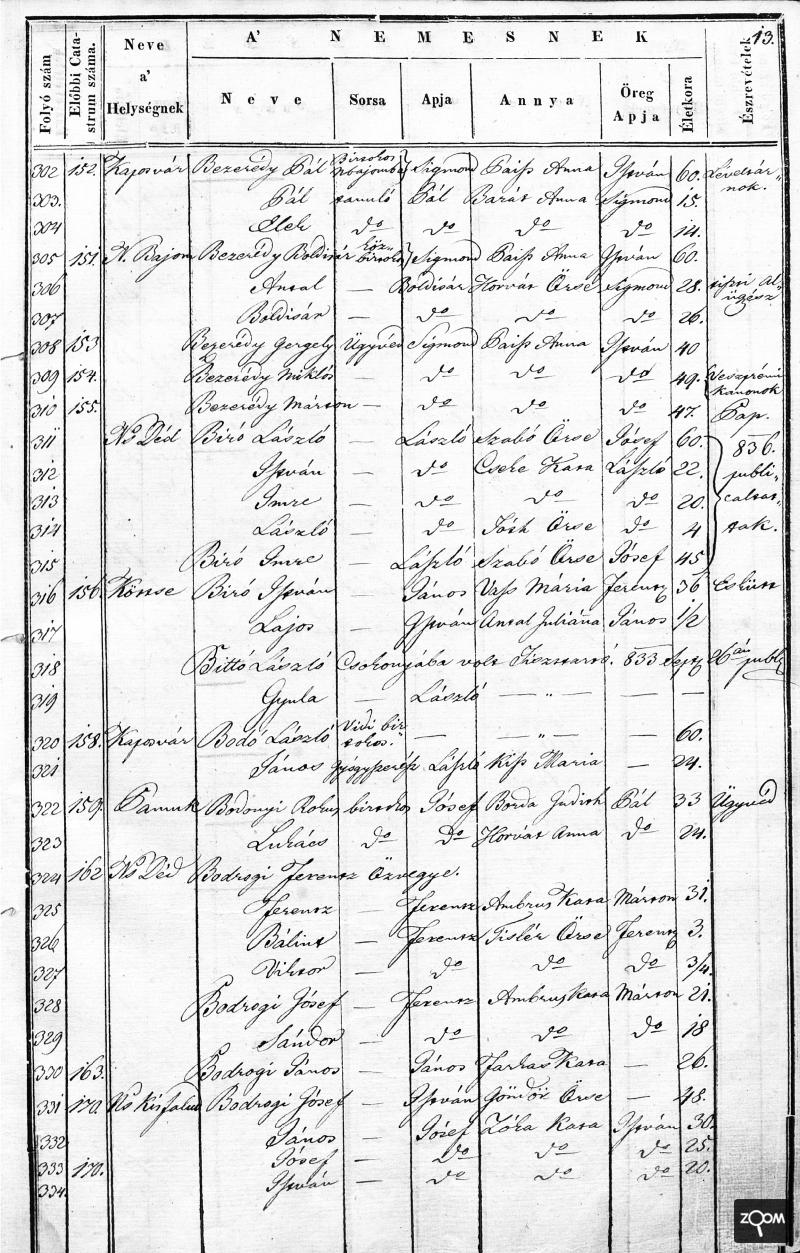 13.
A' NEMESNEK
Folyó szám | Előbbi Catastrum száma. | Neve a' Helységnek | Neve | Sorsa | Apja | Annya | Öreg Apja | Életkora | Észrevételek
302 152. Kaposvár Bezerédy Pál Birtokos Sigmond Paiss Anna István 60. Levéltárnok.
303. Pál tanuló Pál Barát Anna Sigmond 15.
304 Elek do do do do 14.
305 151. N. Bajom Bezerédy Boldisár közbirtokos Sigmond Paiss Anna István 60.
306 Antal — Boldisár Horvát Örse Sigmond 28. tiszti alügyész
307 Boldisár — do do do 26.
308 153 Bezerédy Gergely Ügyvéd Sigmond Paiss Anna István 40
309 154. Bezerédy Miklós — do do do 49. Veszprémi kanonok
310 155. Bezerédy Márton — do do do 47. Pap.
311 Ns Déd Biró László — László Szabó Örse Jósef 60. 836. publicaltattak.
312 István — do Cseke Kata László 22.
313 Imre — do do do 20.
314 László — do Tóth Örse do 4
315 Biró Imre — László Szabó Örse Jósef 45
316 156. Köttse Biró István — János Vass Mária Ferentz 36 Eskütt
317 Lajos — István Antal Juliána János 1/2
318 Bittó László Csokonyába volt Tiszttartó. 833 Sept 26án publ
319 Gyula — László — " — — —
320 158. Kaposvár Bodó László Vidi birtokos." — — " — — 60.
321 János gyógyszerész László Kiss Maria — 24.
322 159. Pamuk Bodonyi Rokus birtokos Jósef Borda Judith Pál 33 Ügyvéd
323 Lukács do do Horvát Anna do 24.
324 162 Ns Déd Bodrogi Ferentz Özvegye.
325 Ferentz — Ferentz Ambrus Kata Márton 31.
326 Bálint — Ferentz Tislér Örse Ferentz 3.
327 Viktor — do do do 3/4.
328 Bodrogi Jósef — Ferentz Ambrus Kata Márton 21.
329 Sándor — do do do 18
330 163. Bodrogi János — János Farkas Kata — 26.
331 170. Ns Kisfalud Bodrogi Jósef — István Göndör Örse — 48.
332 János — Jósef Zóka Kata István 30.
333 170. Jósef — do do do 25.
334. István — do do do 20.
ZOOM